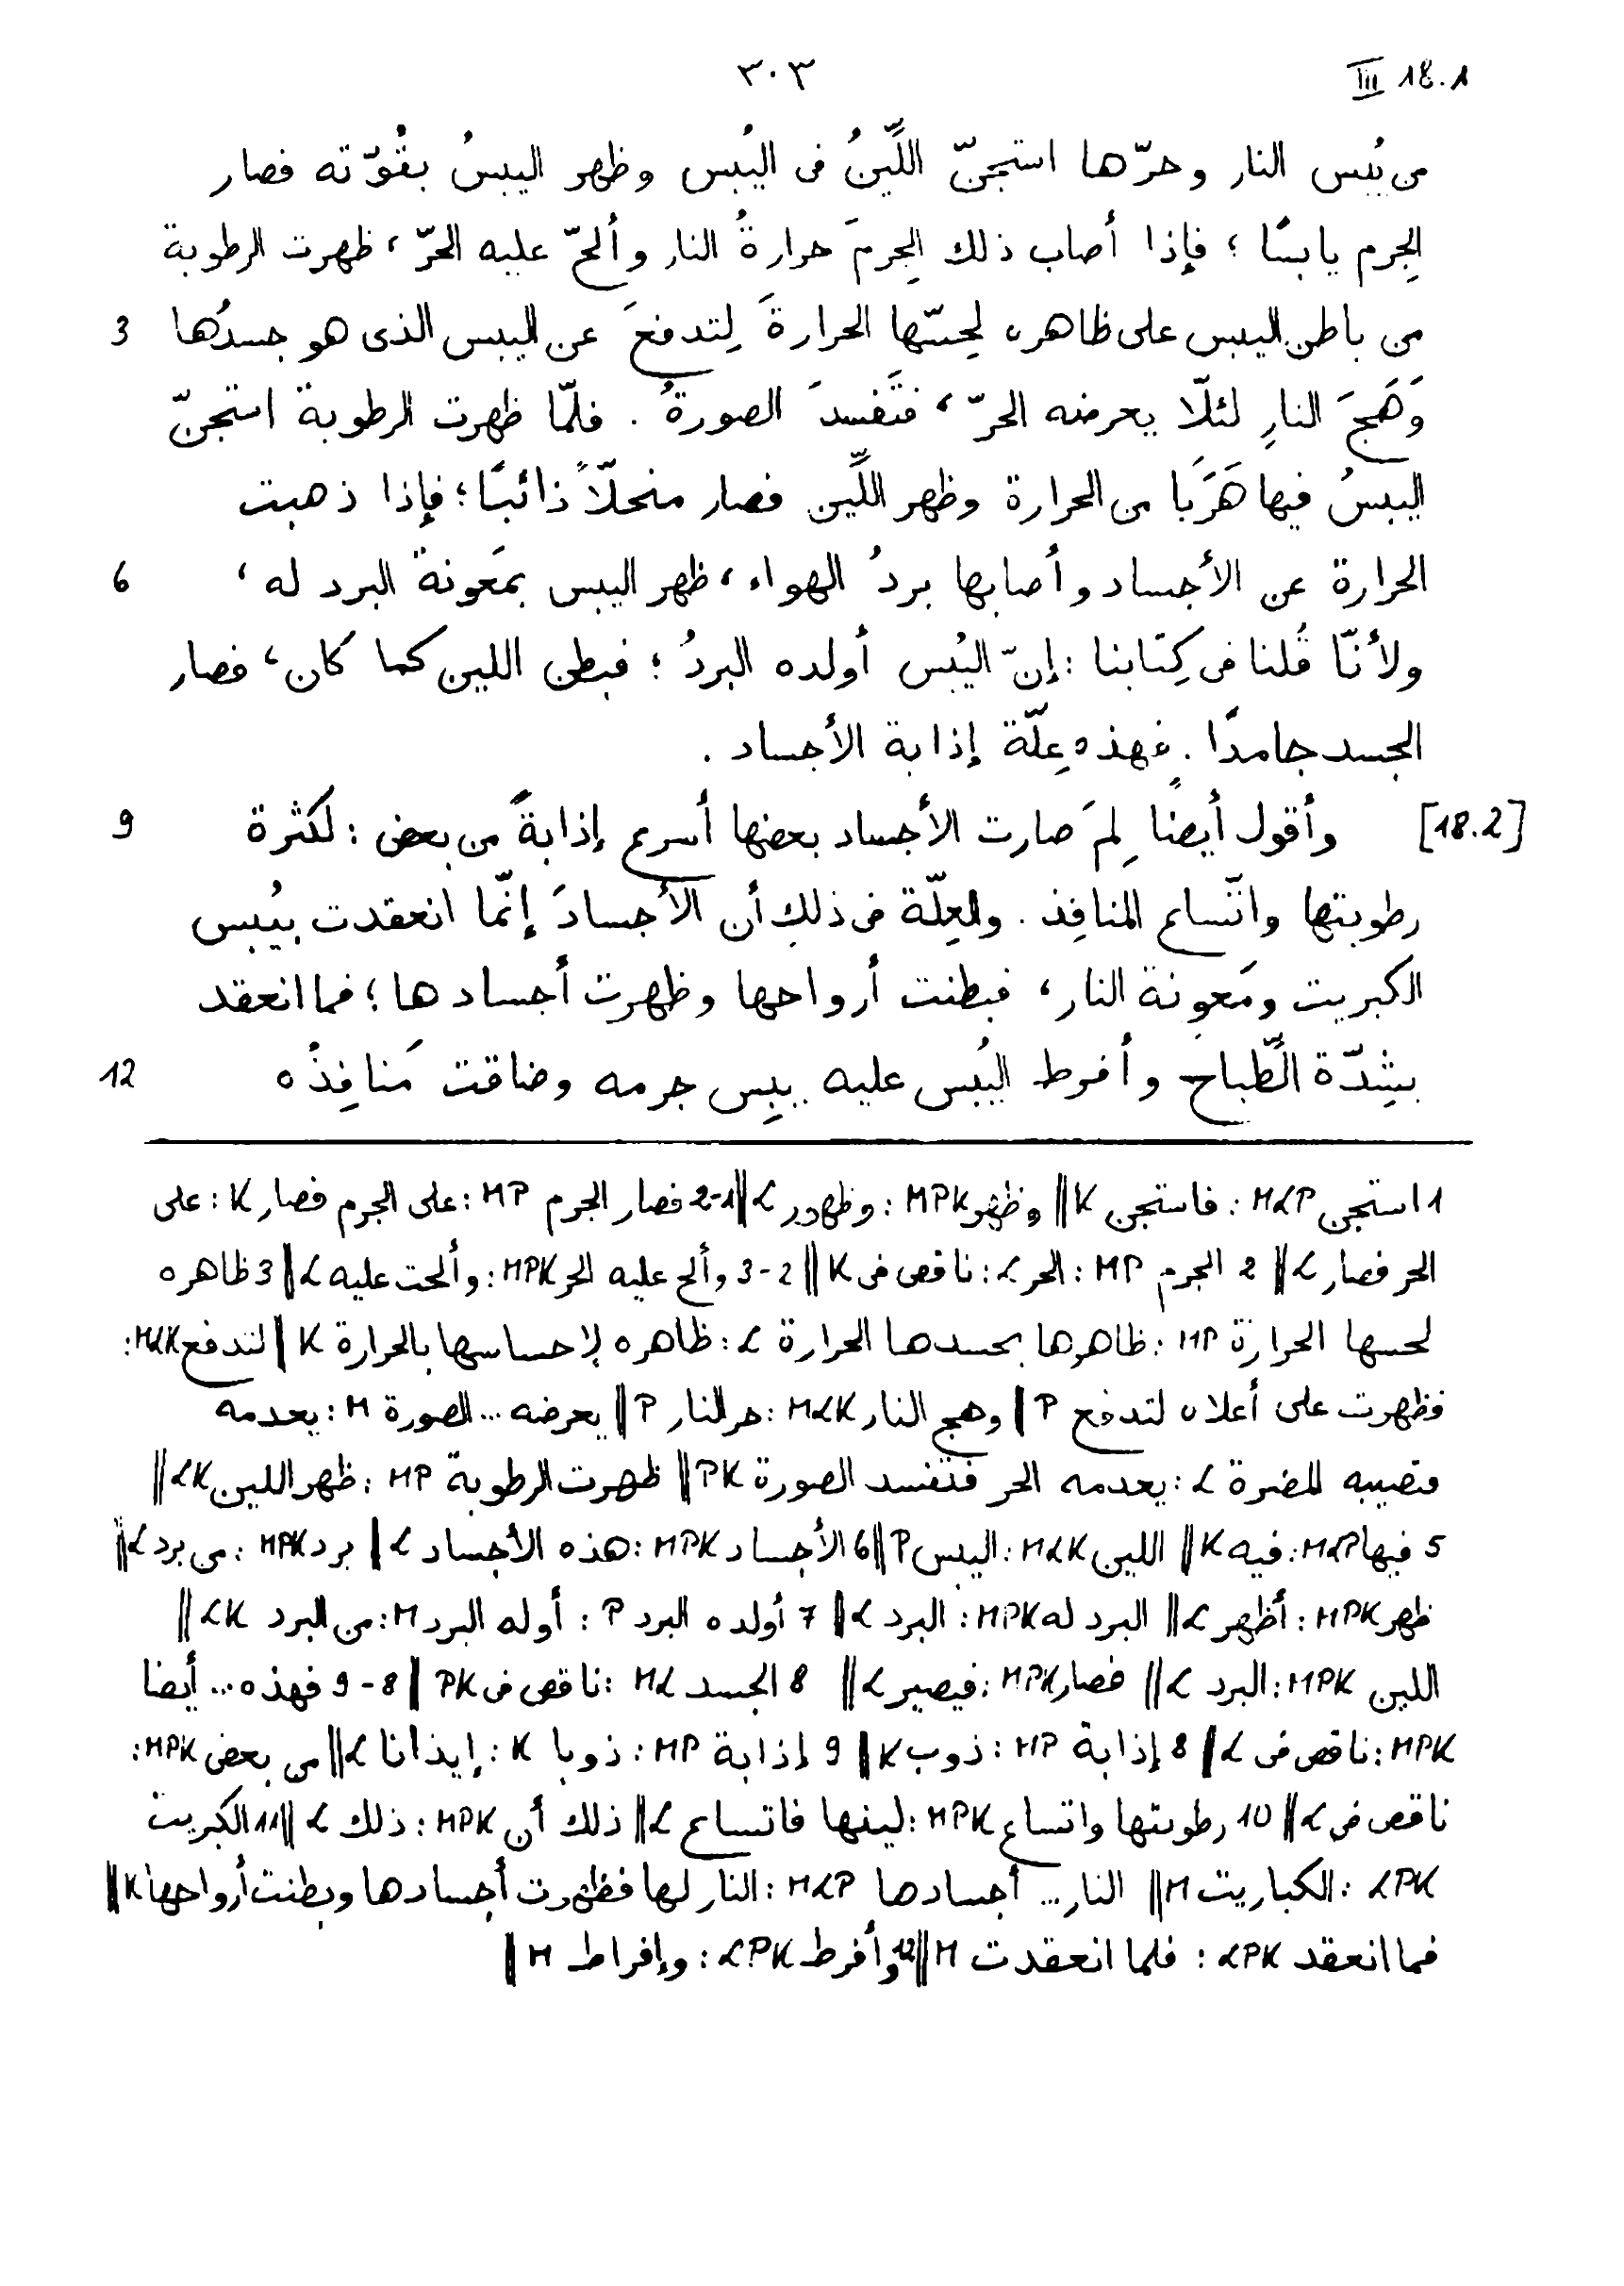 III 18.1 ٣٠٣
من يُبس النار وحرّها استجنّ اللَّينُ فى اليُبس وظهر اليبسُ بقُوّته فصار
الجِرم يابسًا ؛ فإذا أصاب ذلك الجِرمَ حرارةُ النار وألحّ عليه الحرّ ، ظهرت الرطوبة
من باطن اليبس على ظاهره لحِسّها الحرارةَ لِتدفعَ عن اليبس الذى هو جسدُها 3
وَهَجَ النارِ لئلّا يعرضه الحرّ ، فتَفسدَ الصورةُ . فلمّا ظهرت الرطوبة استجنّ
اليبسُ فيها هَرَبًا من الحرارة وظهر اللَّين فصار منحلّاً ذائبًا ؛ فإذا ذهبت
الحرارة عن الأجساد وأصابها بردُ الهواء ، ظهر اليبس بمَعونة البرد له ، 6
ولأنّا قُلنا فى كِتابنا : إنّ اليُبس أولده البردُ ؛ فبطن اللين كما كان ، فصار
الجسد جامدًا . فهذه عِلّة إذابة الأجساد .
[18.2] وأقول أيضًا لِمَ صارت الأجساد بعضها أسرع إذابةً من بعض : لكثرة 9
رطوبتها واتّساع المنافِذ . والعِلّة فى ذلك أن الأجسادَ إنّما انعقدت بيُبس
الكبريت ومَعونة النار ، فبطنت أرواحها وظهرت أجسادها ؛ فما انعقد
بشِدّة الطَّباخ وأفرط اليُبس عليه يبِس جرمه وضاقت مَنافِذُه 12
1 استجن MLP : فاستجن K || وظهر MPK : وظهور L || 1-2 فصار الجرم MP : على الجرم فصار K : على
الحر فصار L || 2 الجرم MP : الحر L : ناقص فى K || 2-3 وألح عليه الحر MPK : وألحت عليه L || 3 ظاهره
لحسها الحرارة MP : ظاهرها بحسدها الحرارة L : ظاهره لإحساسها بالحرارة K || لتدفع MLK :
فظهرت على أعلاه لتدفع P || وهج النار MLK : حر النار P || يعرضه ... الصورة M : يعدمه
وتصيبه المضرة L : يعدمه الحر فتفسد الصورة PK || ظهرت الرطوبة MP : ظهر اللين LK ||
5 فيها MLP : فيه K || اللين MLK : اليبس P || 6 الأجساد MPK : هذه الأجساد L || برد MPK : من برد L ||
ظهر MPK : أظهر L || البرد له MPK : البرد L || 7 أولده البرد P : أوله البرد M : من البرد LK ||
اللين MPK : البرد L || فصار MPK : فيصير L || 8 الجسد ML : ناقص فى PK || 8-9 فهذه ... أيضا
MPK : ناقص فى L || 8 إذابة MP : ذوب K || 9 إذابة MP : ذوبا K : إيذانا L || من بعض MPK :
ناقص فى L || 10 رطوبتها واتساع MPK : لينها فاتساع L || ذلك أن MPK : ذلك L || 11 الكبريت
LPK : الكباريت M || النار ... أجسادها MLP : النار لها فظهرت أجسادها وبطنت أرواحها K ||
فما انعقد LPK : فلما انعقدت M || 12 وأفرط LPK : وإفراط M ||